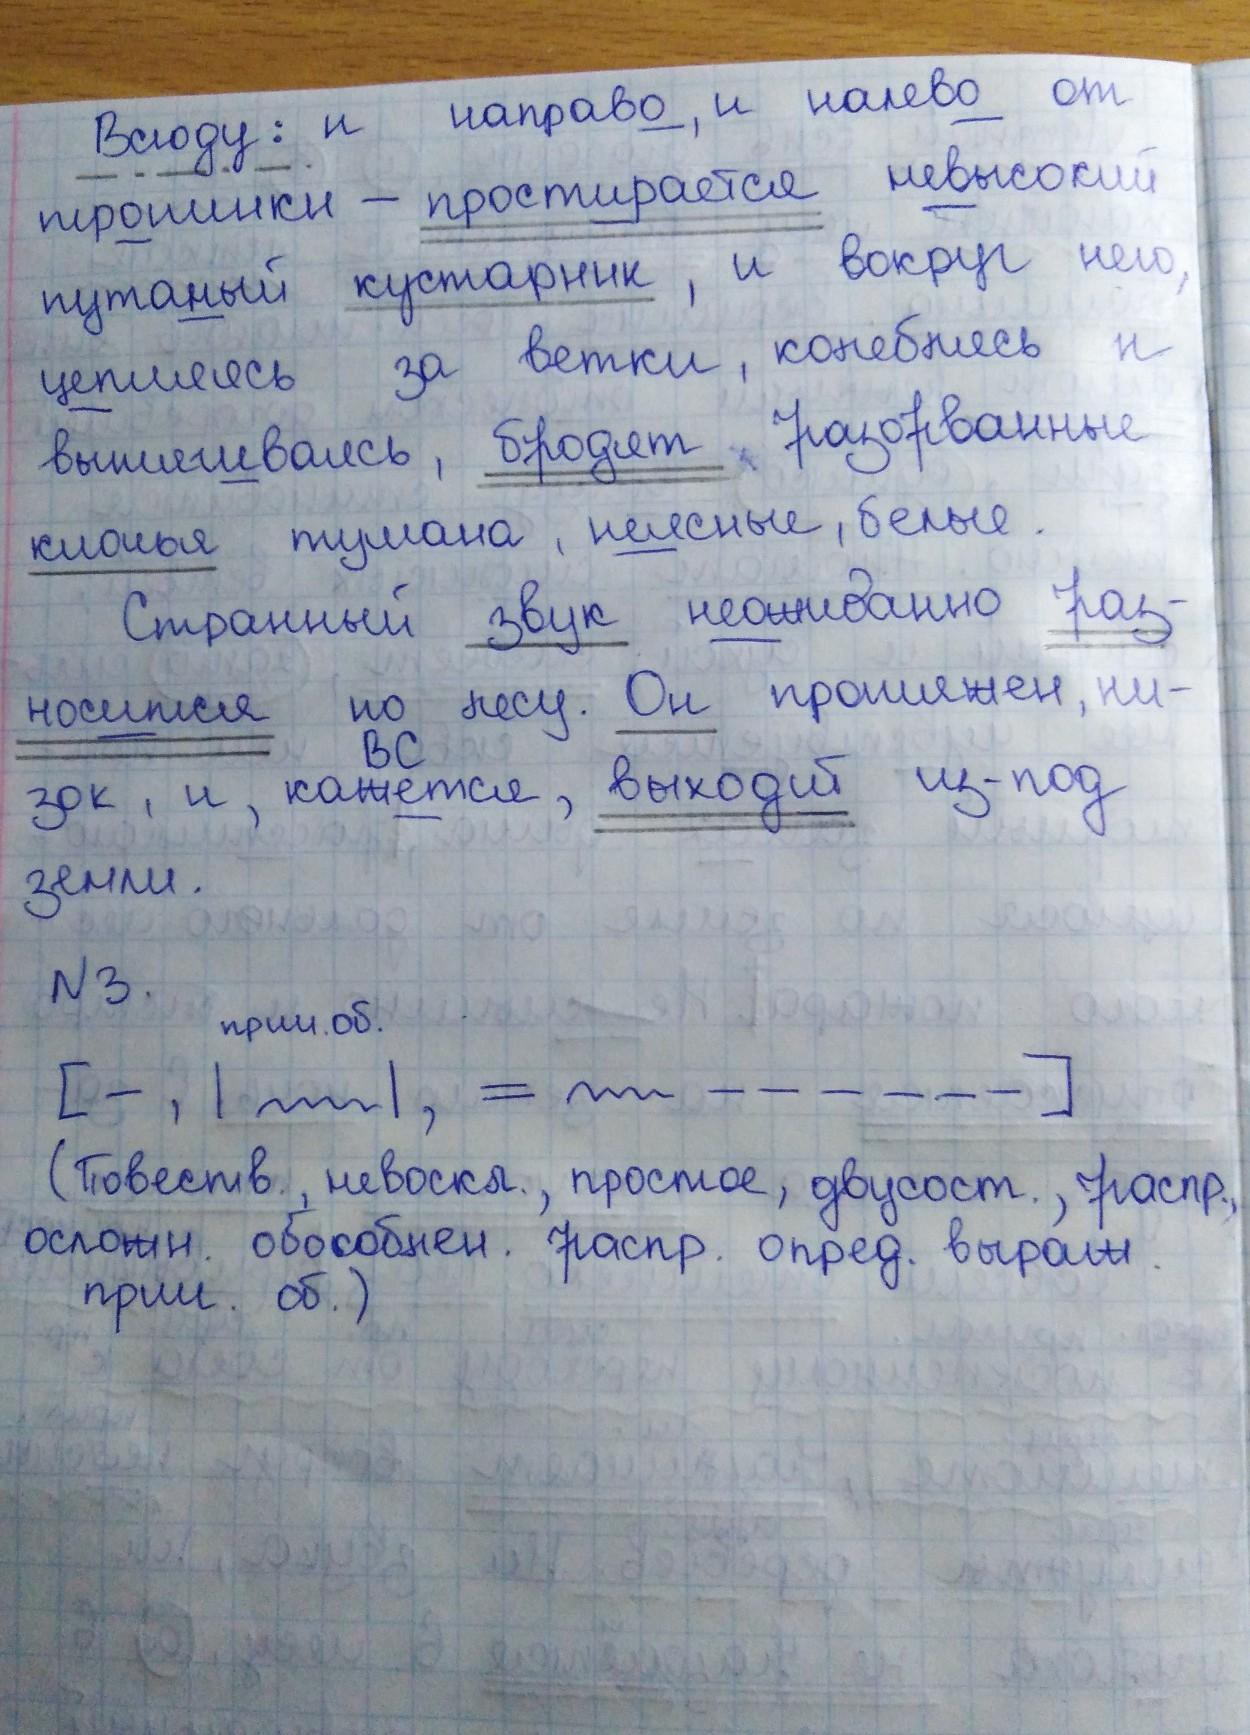 Всюду: и направо, и налево от
тропинки – простирается невысокий
путаный кустарник, и вокруг него,
цепляясь за ветки, колеблясь и
вытягиваясь, бродят разорванные
клочья тумана, неясные, белые.
Странный звук неожиданно раз-
носится по лесу. Он протяжен, ни-
ВС
зок, и, кажется, выходит из-под
земли.
N3.
прич. об.
[–, | |, = – – – – – –]
(Повеств., невоскл., простое, двусост., распр.,
осложн. обособлен. распр. опред. выраж.
прич. об.)